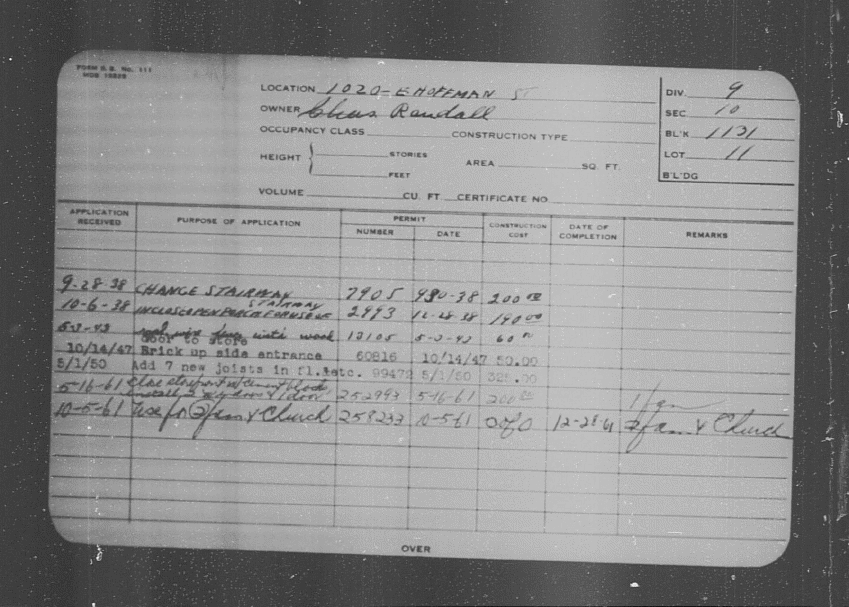 FORM S. B. No. 111
LOCATION 1020-E HOFFMAN ST
OWNER Chas. Randall
OCCUPANCY CLASS CONSTRUCTION TYPE
HEIGHT STORIES FEET AREA SQ. FT.
VOLUME CU. FT. CERTIFICATE NO
DIV. 9
SEC. 10
BL'K 1131
LOT 11
B'L'DG
APPLICATION RECEIVED PURPOSE OF APPLICATION PERMIT NUMBER DATE CONSTRUCTION COST DATE OF COMPLETION REMARKS
9-28-38 CHANGE STAIRWAY 7905 38 200 00
STAIRWAY
10-6-38 INCLOSE OPEN PORCH FOR USE OF 2993 190 00
wire with wood 12105 60
door to store
10/14/47 Brick up side entrance 60816 10/14/47 50.00
5/1/50 Add 7 new joists in fl. etc. 99472 5/1/50 325.00
5-16-61 block
install 2 door 252993 5-16-61 200 1 fam
10-5-61 Use for 2 fam & Church 258233 10-5-61 12-28-61 2 fam & Church
OVER